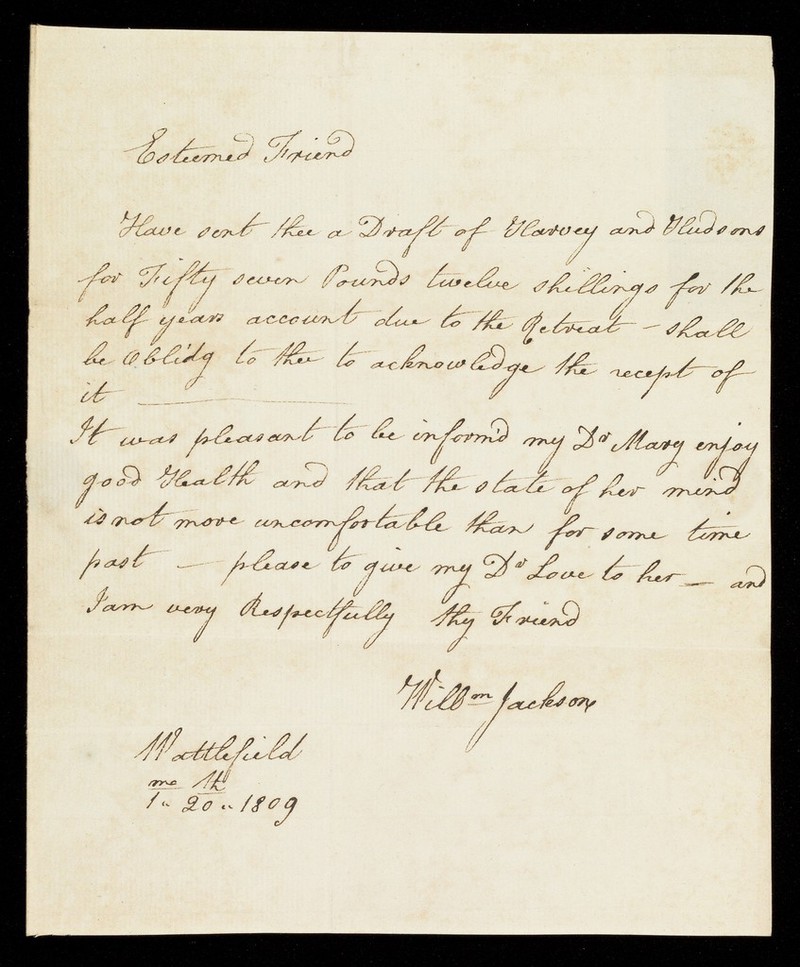 Esteemed Friend
Have sent thee a Draft of Harvey and Hudsons
for Fifty seven Pounds twelve shillings for the
half years account due to the Retreat – shall
be Oblidg to thee to acknowledge the recept of
it
It was pleasant to be inform'd my Dr Mary enjoy
good Health and that the state of her mind
is not more uncomfortable than for some time
past – please to give my Dr Love to her – and
I am very Respectfully thy Friend
Willm Jackson
Wattlefield
1mo 20th 1809